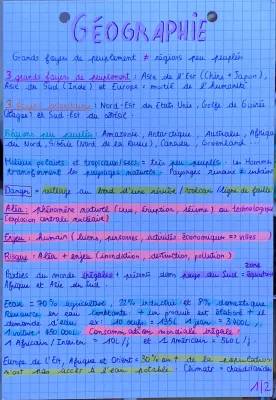 GÉOGRAPHIE
Grands foyer de peuplement ≠ régions peu peuplés
3 grands foyers de peuplement : Asie de l'Est (Chine + Japon),
Asie du Sud (Inde) et Europe = moitié de l'humanité
: Nord-Est des États Unis, Golfe de Guinée
et Sud-Est du Brésil
Régions peu peuplés : Amazonie, Antarctique, Australie, Afrique
du Nord, Sibérie (Nord de la Russie), Canada, Groenland...
Milieux polaires et tropicaux/secs = très peu peuplés. Les Hommes
transforment les paysages naturels. Paysages ruraux ≠ urbains
Danger = au bord d'une rivière/volcan/ligne de faille
Aléa : phénomène naturel (crue, éruption, séisme) ou technologique
(explosion centrale nucléaire)
Enjeu : humain (biens, personnes, activités économiques => villes)
Risque : Aléa + enjeu (inondation, destruction, pollution)
Parties du monde inégales + présent dans pays du Sud = zone équateur
Afrique et Asie du Sud.
Eau = 70% agriculture, 22% industrie et 8% domestique
Ressource en eau
demande d'eau ex: 10 œufs = 135L 1 jean = 3400L,
1 voiture = 450 000L. Consommation mondiale inégale!
1 Africain/Indien = 10L/j et 1 Américain = 560L/j.
Europe de l'Est, Afrique et Orient = 30% en + de la population
n'ont pas accès à l'eau potable. Climate =
1/2